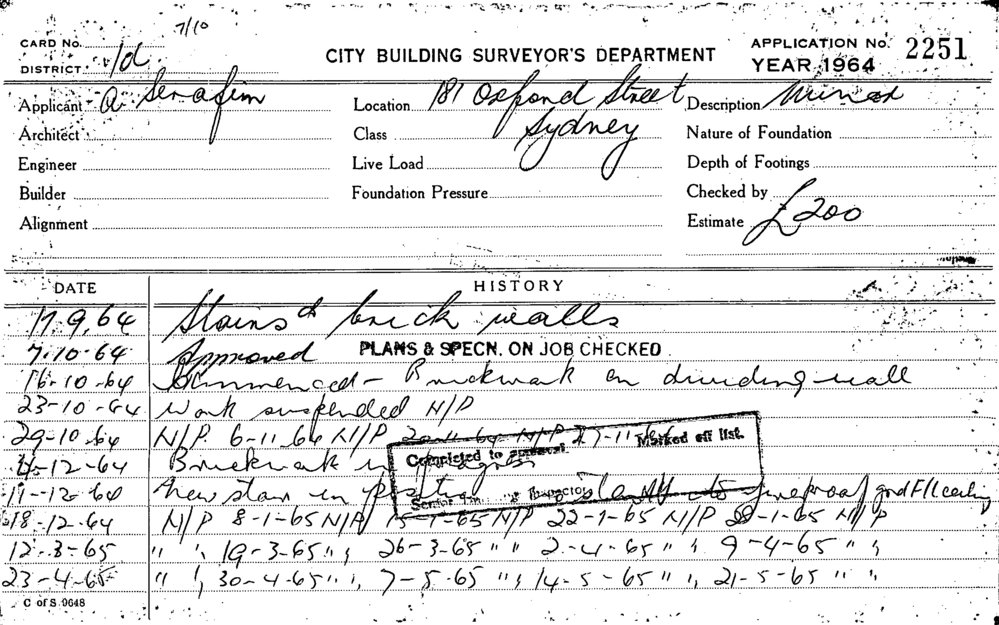 7/10
CARD No.
DISTRICT
CITY BUILDING SURVEYOR'S DEPARTMENT
APPLICATION No. 2251
YEAR 1964
Applicant A Serafim
Location 181 Oxford Street
Sydney
Description Minor
Architect
Class
Nature of Foundation
Engineer
Live Load
Depth of Footings
Builder
Foundation Pressure
Checked by
Alignment
Estimate £200
DATE
HISTORY
17.9.64 Stairs & brick walls
7.10.64 Approved PLANS & SPECN. ON JOB CHECKED
16-10-64 Commenced - Brickwork on dividing wall
23-10-64 Work suspended N/P
29-10-64 N/P. 6-11-64 N/P 20-11-64 N/P 27-11-64
Completed to approval Marked off list.
4-12-64 Brickwork in progress
11-12-64 New stair in position fireproof gnd Fl ceiling
Senior Inspector
18-12-64 N/P 8-1-65 N/P 15-1-65 N/P 22-1-65 N/P 28-1-65 N/P
12-3-65 " " 19-3-65 " " 26-3-65 " " 2-4-65 " " 9-4-65 " "
23-4-65 " " 30-4-65 " " 7-5-65 " " 14-5-65 " " 21-5-65 " "
C of S 9648